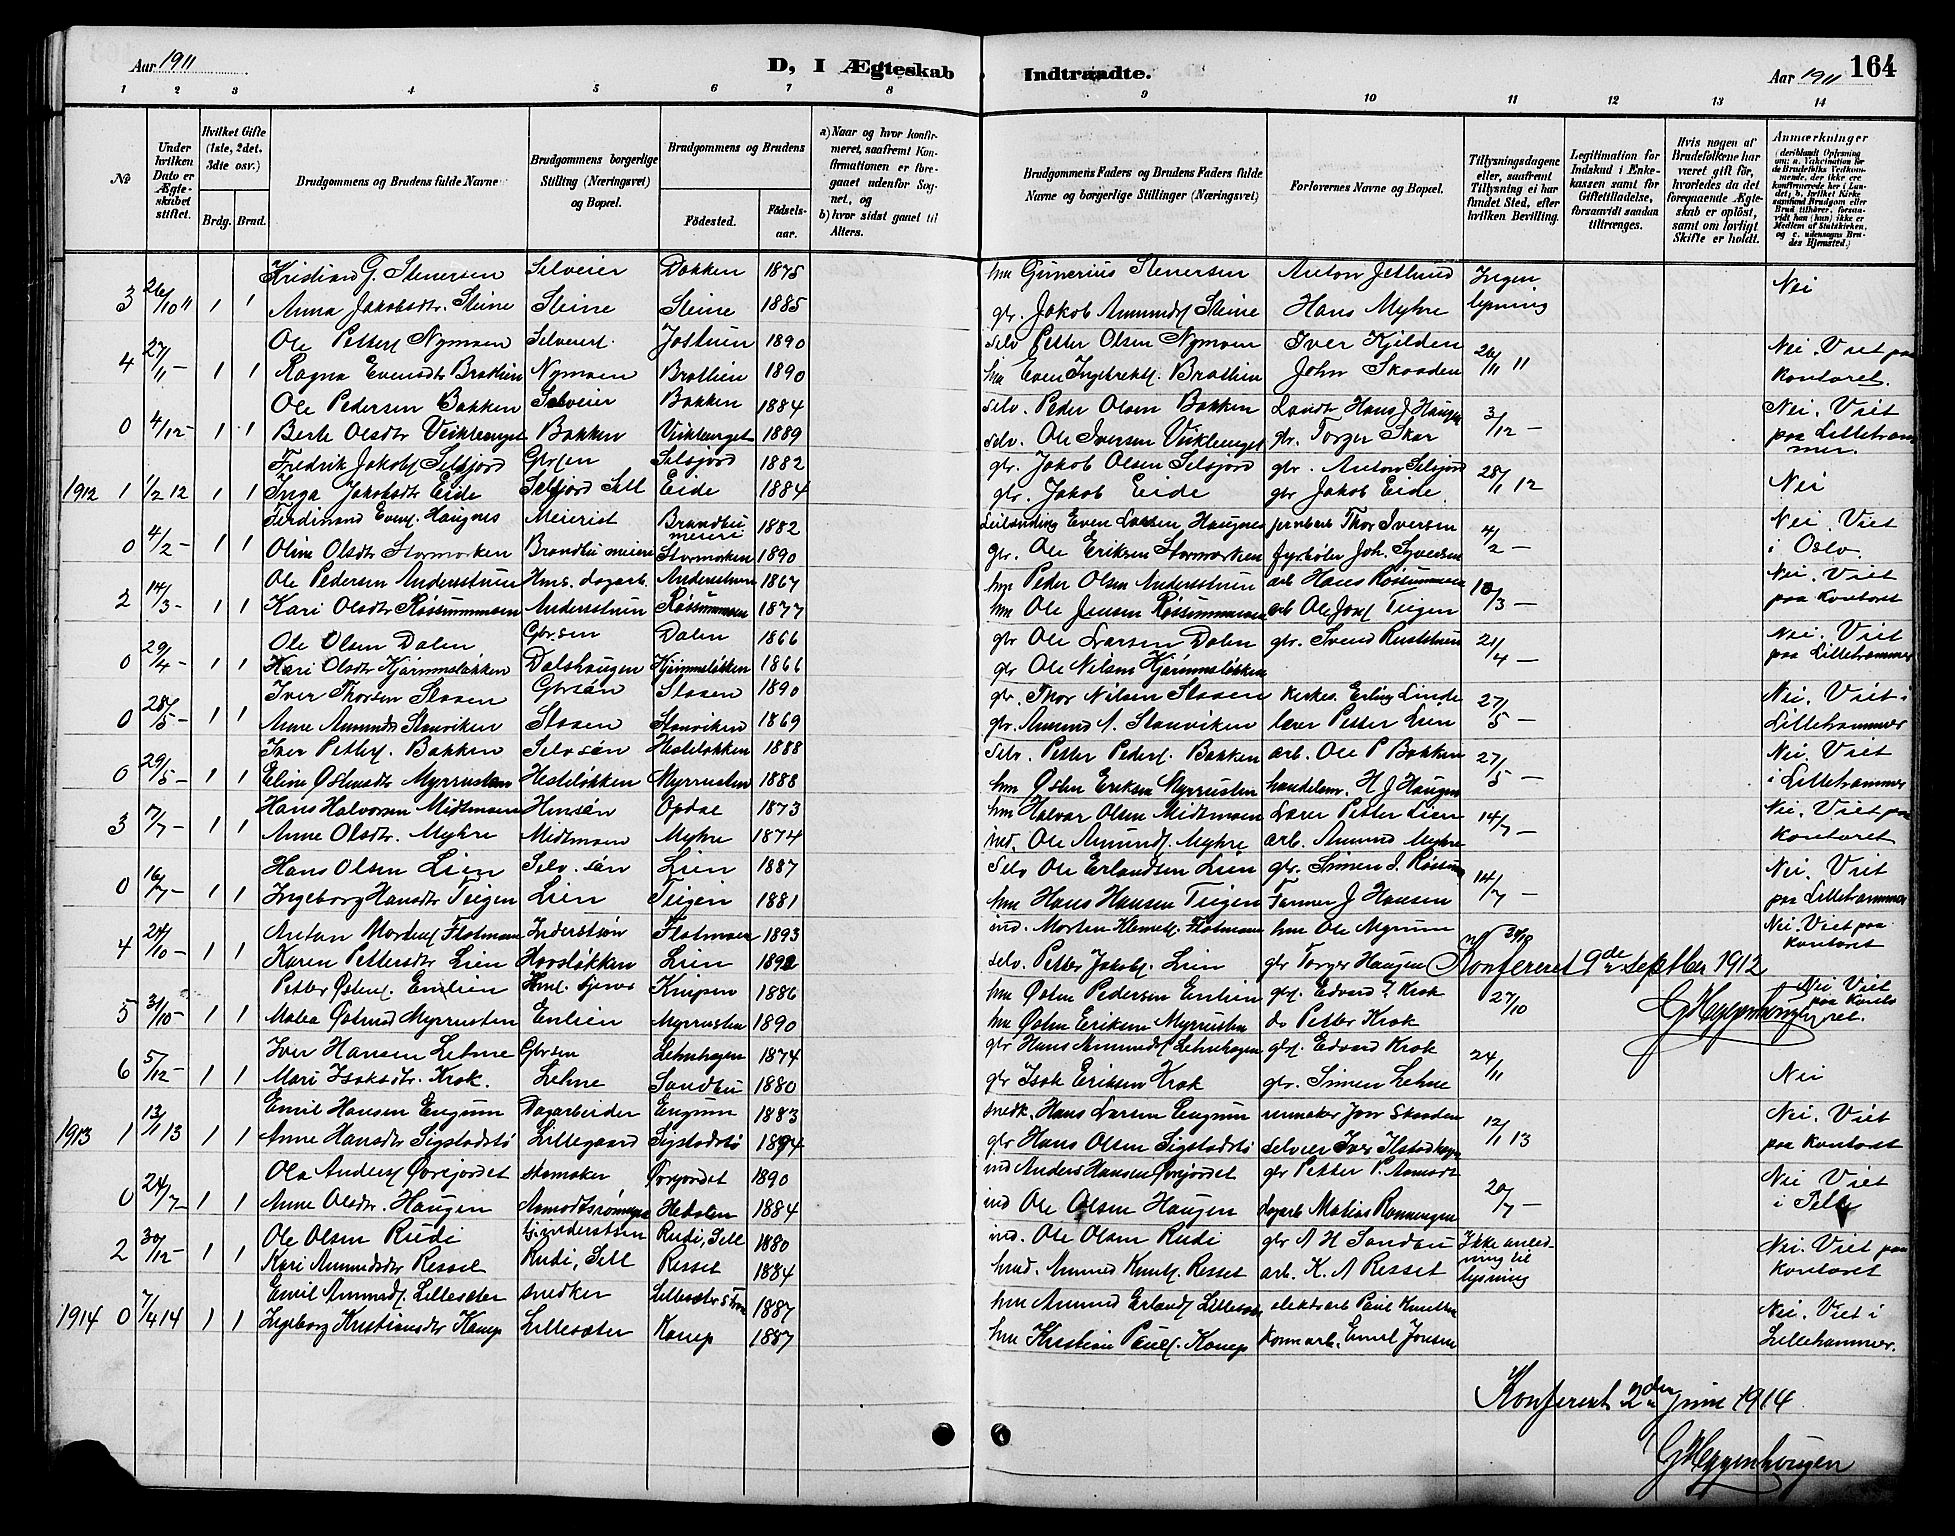 Aar 1911 D, I Ægteskab Indtraadte. Aar 1911 164
1 2 3 4 5 6 7 8 9 10 11 12 13 14
No
Under hvilken Dato er Ægteskabet stiftet.
Hvilket Gifte (1ste, 2det, 3dte osv.)
Brdg. Brud.
Brudgommens og Brudens fulde Navne
Brudgommens borgerlige Stilling (Næringsvei) og Bopæl.
Brudgommens og Brudens
Fødested. Fødselsaar.
a) Naar og hvor konfirmeret, saafremt Konfirmationen er foregaaet udenfor Sognet, og
b) hvor sidst gaaet til Alters.
Brudgommens Faders og Brudens Faders fulde Navne og borgerlige Stillinger (Næringsvei)
Forlovernes Navne og Bopæl.
Tillysningsdagene eller, saafremt Tillysning ei har fundet Sted, efter hvilken Bevilling.
Legitimation for Indskud i Enkekassen samt for Giftetilladelse, forsaavidt saadan tiltrænges.
Hvis nogen af Brudefolkene har været gift før, hvorledes da det foregaaende Ægteskab er opløst, samt om lovligt Skifte er holdt.
Anmærkninger
Kristian G. Stenersen Selveier Dokken 1875 hm Gunerius Stenersen Anton Jetlund Ingen Nei
3 26/10 11 1 1 Anna Jakobsdtr. Steine Steine Steine 1885 gbr. Jakob Amundsf Steine Hans Myhre lysning
Ole Petters Nymoen Selveiers. Jostuen 1890 selv Petter Olsen Nymoen Iver Kjilden 26/11 11 Nei. Viet paa
4 27/11 - 1 1 Ragna Evensdtr Bratlien Nymoen Bratlien 1890 hm Even Ingebrektsf. Bratlien John Skaaden kontoret.
Ole Pedersen Bakken Selveier Bakken 1884 selv. Peder Olsen Bakken Landh Hans J Haugen 3/12 - Nei. Viet
0 4/12 - 1 1 Berte Olsdtr Veikleenget Bakken Veikleenget 1889 selv. Ole Iversen Veikleenget gbr. Torger Skar paa Lillehammer.
Fredrik Jakobsf Selsjord Gbrsøn Selsjord 1882 gbr. Jakob Olsen Selsjord gbr. Anton Selsjord 28/1 12
1912 1 1/2 12 1 1 Inga Jakobsdtr Eide Selsjord Sell Eide 1884 gbr. Jakob Eide gbr Jakob Eide. Nei
Ferdinand Evens. Haugnes Meierist Brandbu meieri 1882 Leilænding Even Larsen Haugnes Thor Iversen 4/2 - Nei. Viet
0 4/2 - 1 1 Oline Olsdtr Stormorken Brandbu meieri Stormorken 1890 gbr. Ole Eriksen Stormorken fyrbøter Joh. Syversen i Oslo.
Ole Pedersen Andersstuen Hms. dagarb. Andersstuen 1867 hm Peder Olsen Andersstuen arb Hans Røssummoen 10/3 - Nei. Viet
2 14/3 - 1 1 Kari Olsdtr Røssummoen Andersstuen Røssummoen 1877 hm Ole Jensen Røssummoen arb Ole Josf Teigen paa kontoret
Ole Olsen Dalen Gbrsøn Dalen 1866 gbr Ole Larsen Dalen gbr. Svend Rustsbuen 21/4 - Nei. Viet
0 29/4 - 1 1 Kari Olsdtr Kjørumsløkken Dalshaugen Kjørumsløkken 1866 gbr Ole Nilsen Kjørumsløkken paa Lillehammer
Iver Thorsen Sloen Gbrsøn Sloen 1890 gbr. Thor Nilsen Sloen kirkes. Erling Linde 27/5 - Nei. Viet i
0 28/5 - 1 1 Anne Amundsdtr Stenviken Sloen Stenviken 1869 gbr. Amund A. Stenviken lærer Petter Lien Lillehammer
Iver Petters. Bakken Selvsøn Hesteløkken 1888 Selv. Petter Peders. Bakken arb. Ole P Bakken 27/5 - Nei. Viet
0 29/5 - 1 1 Eline Østensdtr Myrrusten Hesteløkken Myrrusten 1888 hm Østen Eriksen Myrrusten handelsm. H J Haugen i Lillehammer
Hans Halvorsen Midtmoen Hmsøn Opdal 1873 hm Halvor Olsen Midtmoen Lærer Petter Lien 14/7 - Nei. Viet paa
3 7/7 - 1 1 Anne Olsdtr. Myhre Midtmoen Myhre 1874 ind. Ole Amundsf. Myhre arb. Amund Myhre kontoret
Hans Olsen Lien Selv. søn Lien 1887 Selv Ole Erlandsen Lien gbr. Simen I. Røssum 14/7 - Nei. Viet
0 16/7 - 1 1 Ingeborg Hansdtr Teigen Lien Teigen 1881 hm Hans Hansen Teigen Farmer J Hansen paa Lillehammer
Anton Mortens Flatmoen Inderstsøn Flatmoen 1893 ind. Morten Klemets Flatmoen hm Ole Myrum Nei. Viet paa
4 24/10 - 1 1 Karen Pettersdtr Lien Hovsløkken Lien 1892 selv. Petter Jakobs. Lien gbr Torger Haugen kontoret
Konfereret 9de septber 1912
G Heggenhaugen
Petter Østens. Enlien Hms. Kruipen 1886 hm Østen Pedersen Enlien gbs. Edvard I. Krok 27/10 Nei Viet
5 31/10 - 1 1 Matea Østensd Myrrusten Enlien Myrrusten 1890 hm Østen Eriksen Myrrusten do Petter Krok paa kontoret.
Iver Hansen Lehne Gbrsøn Lehnhagen 1874 gbr Hans Amundsf Lehnhagen gbs. Edvard Krok 24/11
6 5/12 - 1 1 Mari Isaksdtr. Krok. Lehne Sandbu 1880 gbr Isak Eriksen Krok gbr. Simen Lehne Nei
Emil Hansen Engum Dagarbeider Engum 1883 snedk. Hans Larsen Engum urmaker Joar Skaaden 12/1 13 Nei. Viet
1913 1 13/1 13 1 1 Anne Hansdtr Sigstadstø Lillegaard Sigstadstø 1894 gbr Hans Olsen Sigstadstø selveier Iver Ilstadhagen paa kontoret
Ole Anders Øvrejordet skomaker Øvrejordet 1890 ind Anders Hansen Øvrejordet gbr Petter P. Aamodt 20/7 - Nei Viet
0 24/7 - 1 1 Anne Olsdtr. Haugen Aamodtsrønningen Hedalen 1884 ind Ole Olsen Haugen dagarb Matias Rønningen i Sell
Ole Olsen Rudi inderstsøn Rudi, Sell 1880 ind. Ole Olsen Rudi gbr A H Sandbu Ikke anled- Nei. Viet paa
2 30/12 - 1 1 Kari Amundsdtr Resset Rudi, Sell Resset 1884 hmd. Amund Knuts. Resset arb. K. A Resset ning til lysning kontoret
Emil Amunds. Lillesæter snedker Lillesæter 1887 hm Amund Erlands Lillesæter elektr arb Paul Knutsen Nei. Viet i
1914 0 7/4 14 1 1 Ingeborg Kristiansdtr Kamp Lillesæter Kamp 1887 hm Kristian Pauls. Kamp komm arb. Emil Jonsen Lillehammer.
Konferert 2den juni 1914
G Heggenhaugen